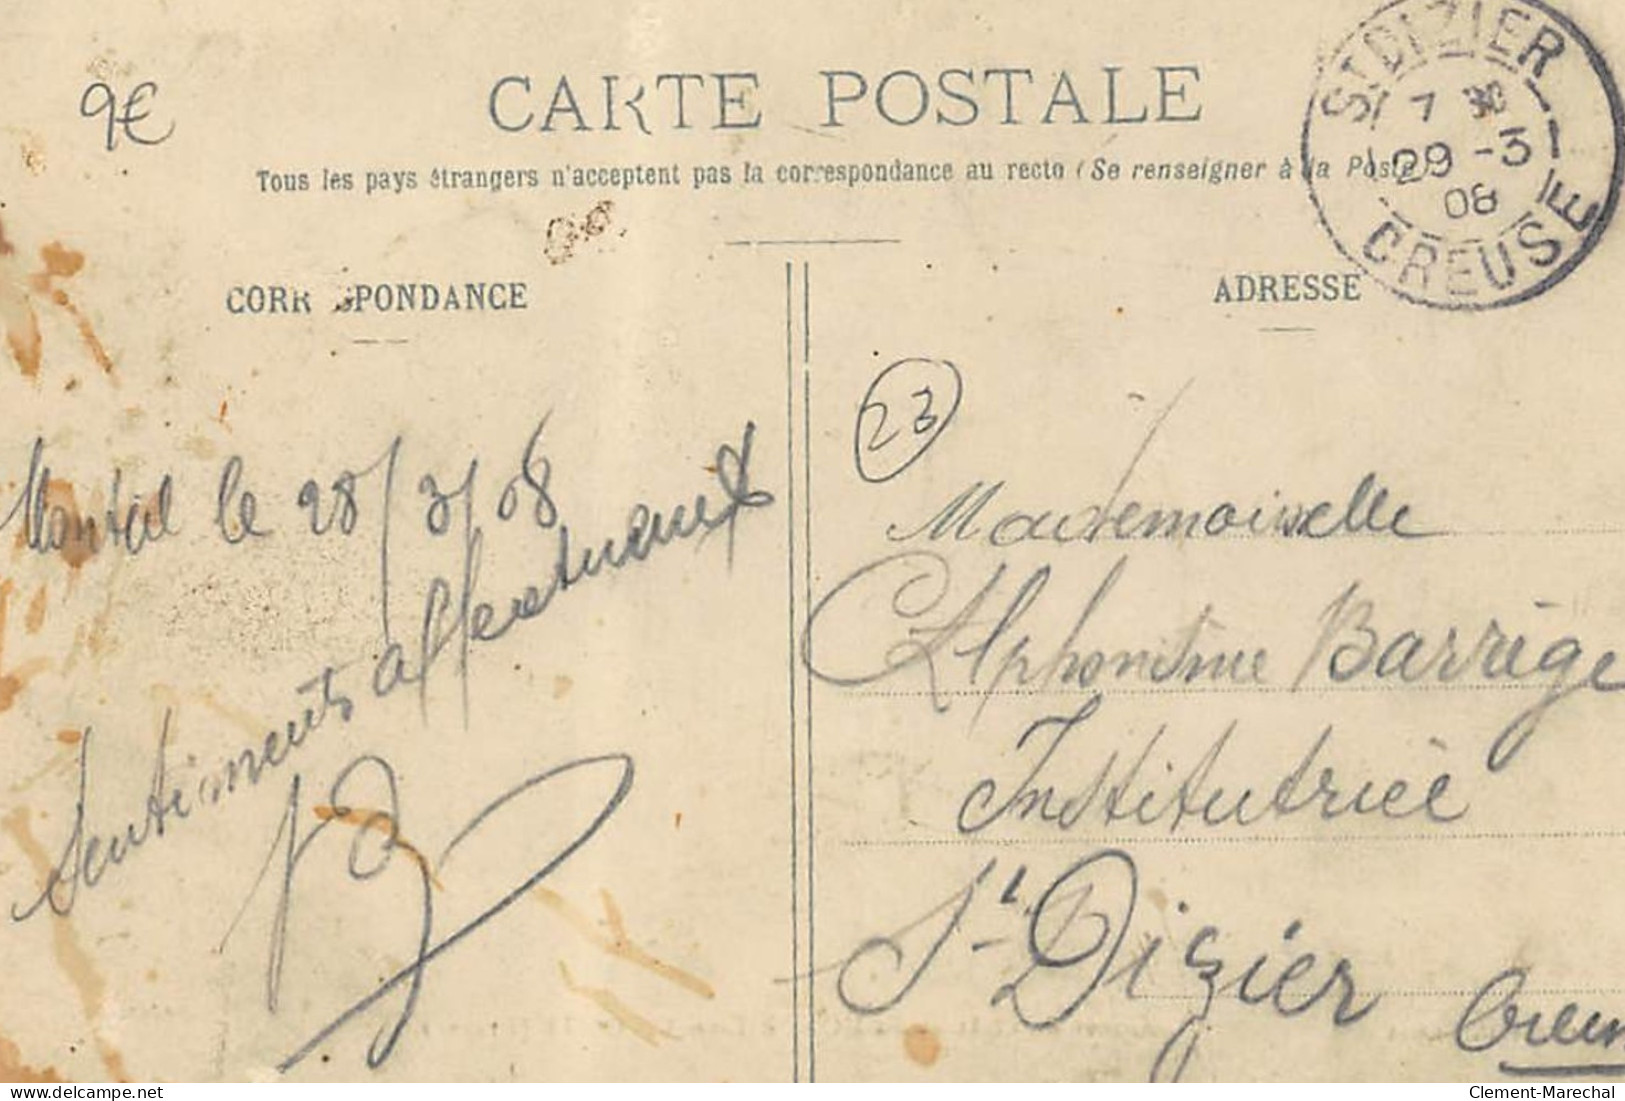 9€
CARTE POSTALE
Tous les pays étrangers n'acceptent pas la correspondance au recto (Se renseigner à la Poste)
ST DIZIER
7
29 -3
08
CREUSE
CORRESPONDANCE
ADRESSE
23
Monteil le 28/3/08
Sentiments affectueux
Mademoiselle
Alphonsine Barrège
Institutrice
St Dizier
Creuse
www.delcampe.net
Clement-Marechal